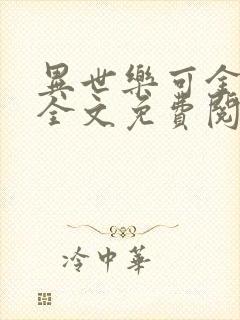 異世樂可全
全文免費閱
冷中華